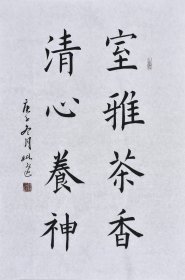 室雅茶香
清心養神
庚子冬月